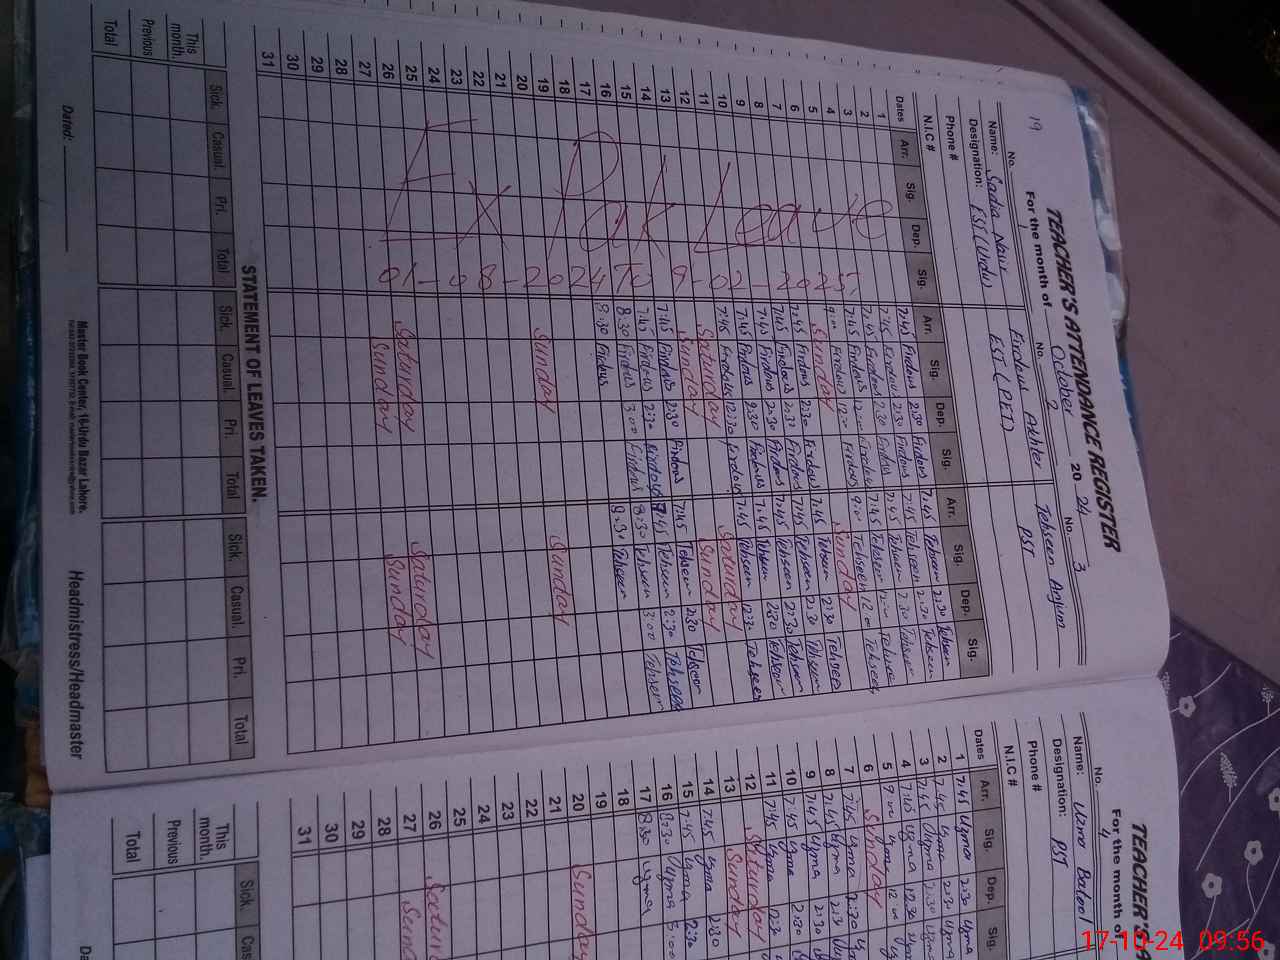 TEACHER'S ATTENDANCE REGISTER
19
For the month of October 2024
No. 1 No. 2 No. 3
Name: Sadia Naur Firdous Akhter Tehseen Anjum
Designation: ESI (Urdu) EST (PET) PST
Phone #
N.I.C #
Dates Arr. Sig. Dep. Sig. Arr. Sig. Dep. Sig. Arr. Sig. Dep. Sig.
Ex Pak Leave
01-08-2024 To 9-02-2025
1 7:45 Firdous 2:30 Firdous 7:45 Tehseen 2:30 Tehseen
2 7:45 Firdous 2:30 Firdous 7:45 Tehseen 2:30 Tehseen
3 7:45 Firdous 2:30 Firdous 7:45 Tehseen 2:30 Tehseen
4 7:45 Firdous 12:00 Firdous 7:45 Tehseen 12:00 Tehseen
5 9:00 Firdous 12:00 Firdous 9:00 Tehseen 12:00 Tehseen
6 Sunday Sunday
7 7:45 Firdous 2:30 Firdous 7:45 Tehseen 2:30 Tehseen
8 7:45 Firdous 2:30 Firdous 7:45 Tehseen 2:30 Tehseen
9 7:45 Firdous 2:30 Firdous 7:45 Tehseen 2:30 Tehseen
10 7:45 Firdous 2:30 Firdous 7:45 Tehseen 2:30 Tehseen
11 7:45 Firdous 12:30 Firdous 7:45 Tehseen 12:30 Tehseen
12 Saturday Saturday
13 Sunday Sunday
14 7:45 Firdous 2:30 Firdous 7:45 Tehseen 2:30 Tehseen
15 7:45 Firdous 2:30 Firdous 7:45 Tehseen 2:30 Tehseen
16 8:30 Firdous 3:00 Firdous 8:30 Tehseen 3:00 Tehseen
17 8:30 Firdous 8:30 Tehseen
18
19
20 Sunday Sunday
21
22
23
24
25
26 Saturday Saturday
27 Sunday Sunday
28
29
30
31
STATEMENT OF LEAVES TAKEN.
Sick. Casual. Pri. Total Sick. Casual. Pri. Total Sick. Casual. Pri. Total
This month.
Previous
Total
Dared:
Master Book Center, 16-Urdu Bazar Lahore.
Headmistress/Headmaster
TEACHER'S A
For the month of
No. 4
Name: Uzma Batool
Designation: PST
Phone #
N.I.C #
Dates Arr. Sig. Dep. Sig.
1 7:45 Uzma 2:30 Uzma
2 7:45 Uzma 2:30 Uzma
3 7:45 Uzma 2:30 Uzma
4 7:45 Uzma 12:30
5 9:00 Uzma 12:00
6 Sunday
7 7:45 Uzma 2:30
8 7:45 Uzma 2:30
9 7:45 Uzma 2:30
10 7:45 Uzma 2:30
11 7:45 Uzma
12 Saturday
13 Sunday
14 7:45 Uzma 2:30
15 7:45 Uzma 2:30
16 8:30 Uzma 3:00
17 8:30 Uzma
18
19
20 Sunday
21
22
23
24
25
26
27
28
29
30
31
Sick. Cas
This month.
Previous
Total
17-10-24 09:56